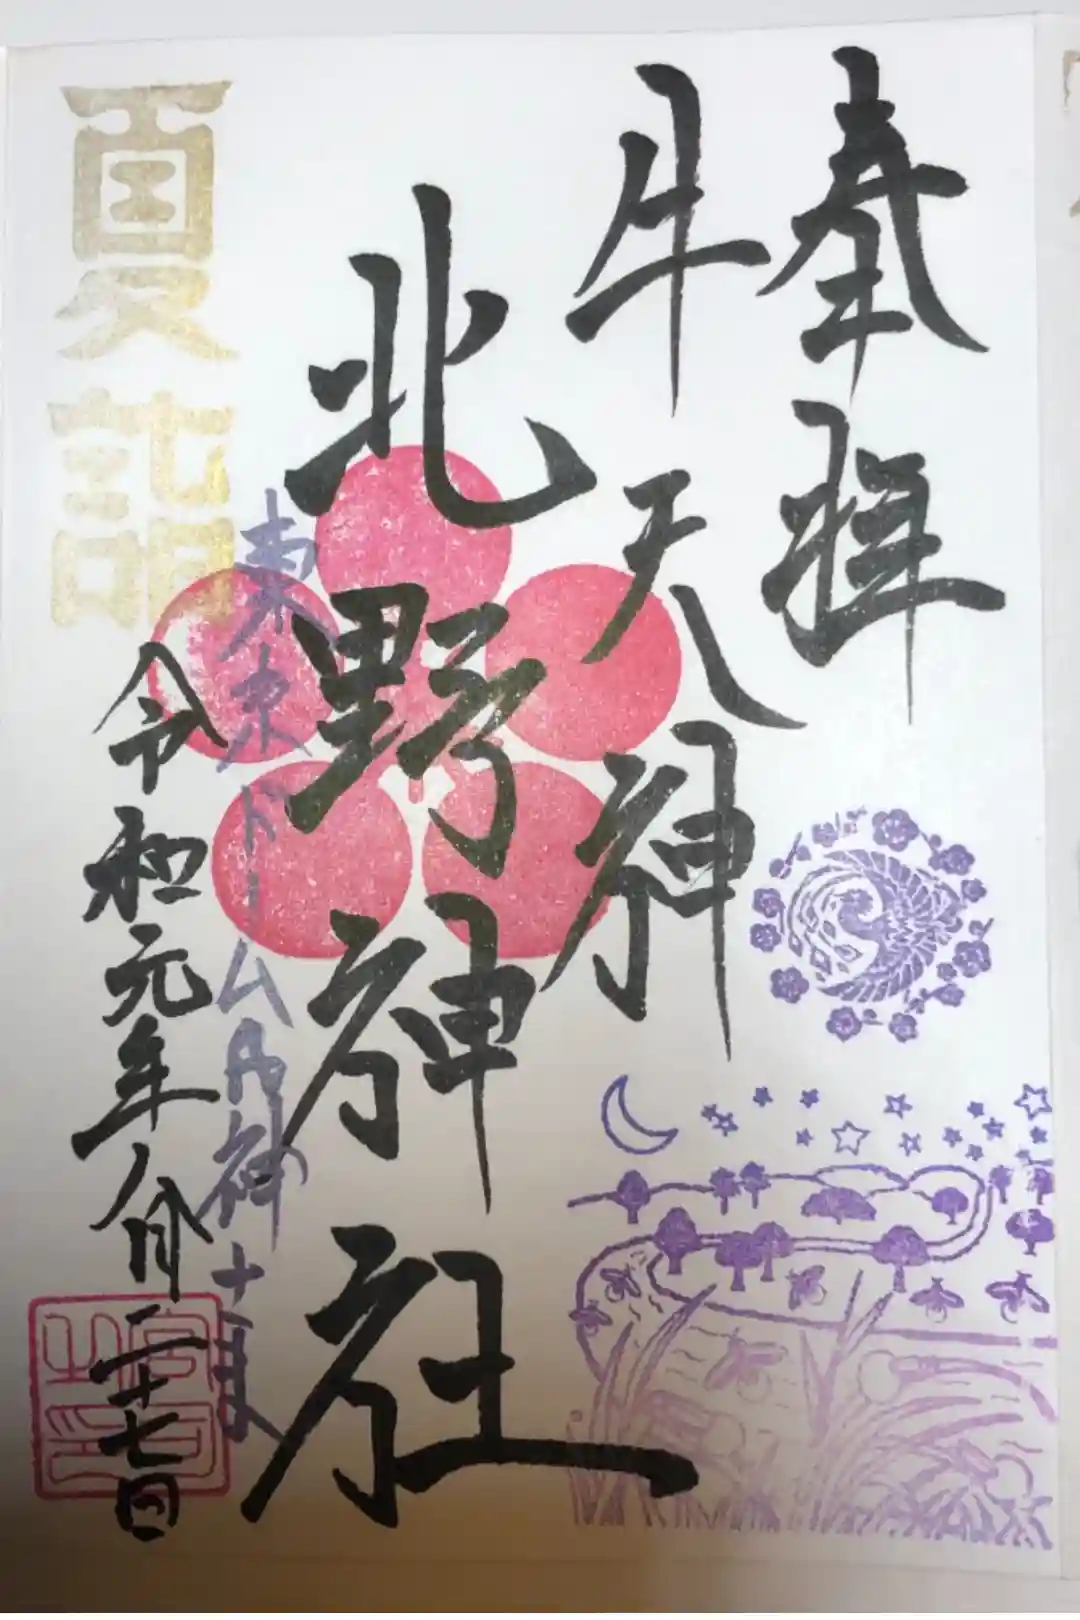 奉拝
牛天神
北野神社
東京ドーム内神
夏詣
令和元年八月二十七日